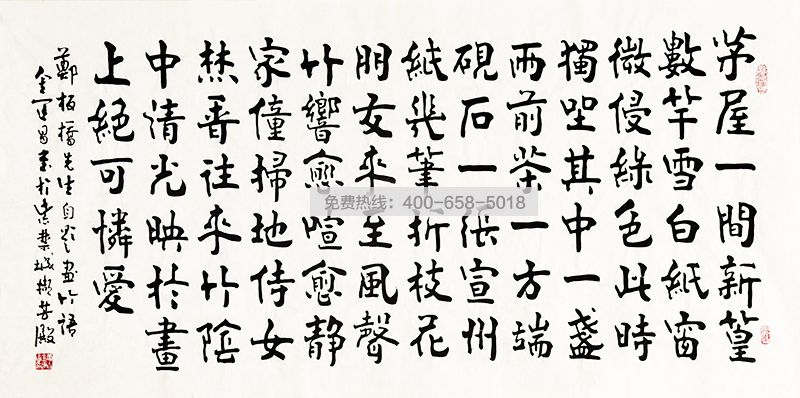 茅屋一間新篁
數竿雪白紙窗
微侵綠色此時
獨坐其中一盞
雨前茶一方端
硯石一張宣州
紙幾筆折枝花
朋友來至風聲
竹響愈喧愈靜
家僮掃地侍女
焚香往來竹陰
中清光映於畫
上絕可憐愛
鄭板橋先生自題畫竹語
金運昌書於紫禁城擷芳殿
免费热线：400-658-5018